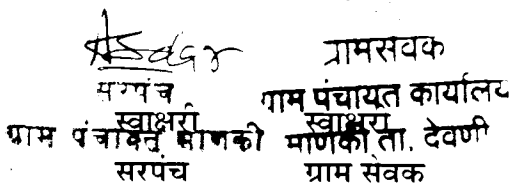 ग्रामसेवक
सरपंच ग्राम पंचायत कार्यालय
स्वाक्षरी स्वाक्षरी
ग्राम पंचायत माणकी माणकी ता. देवणी
सरपंच ग्राम सेवक